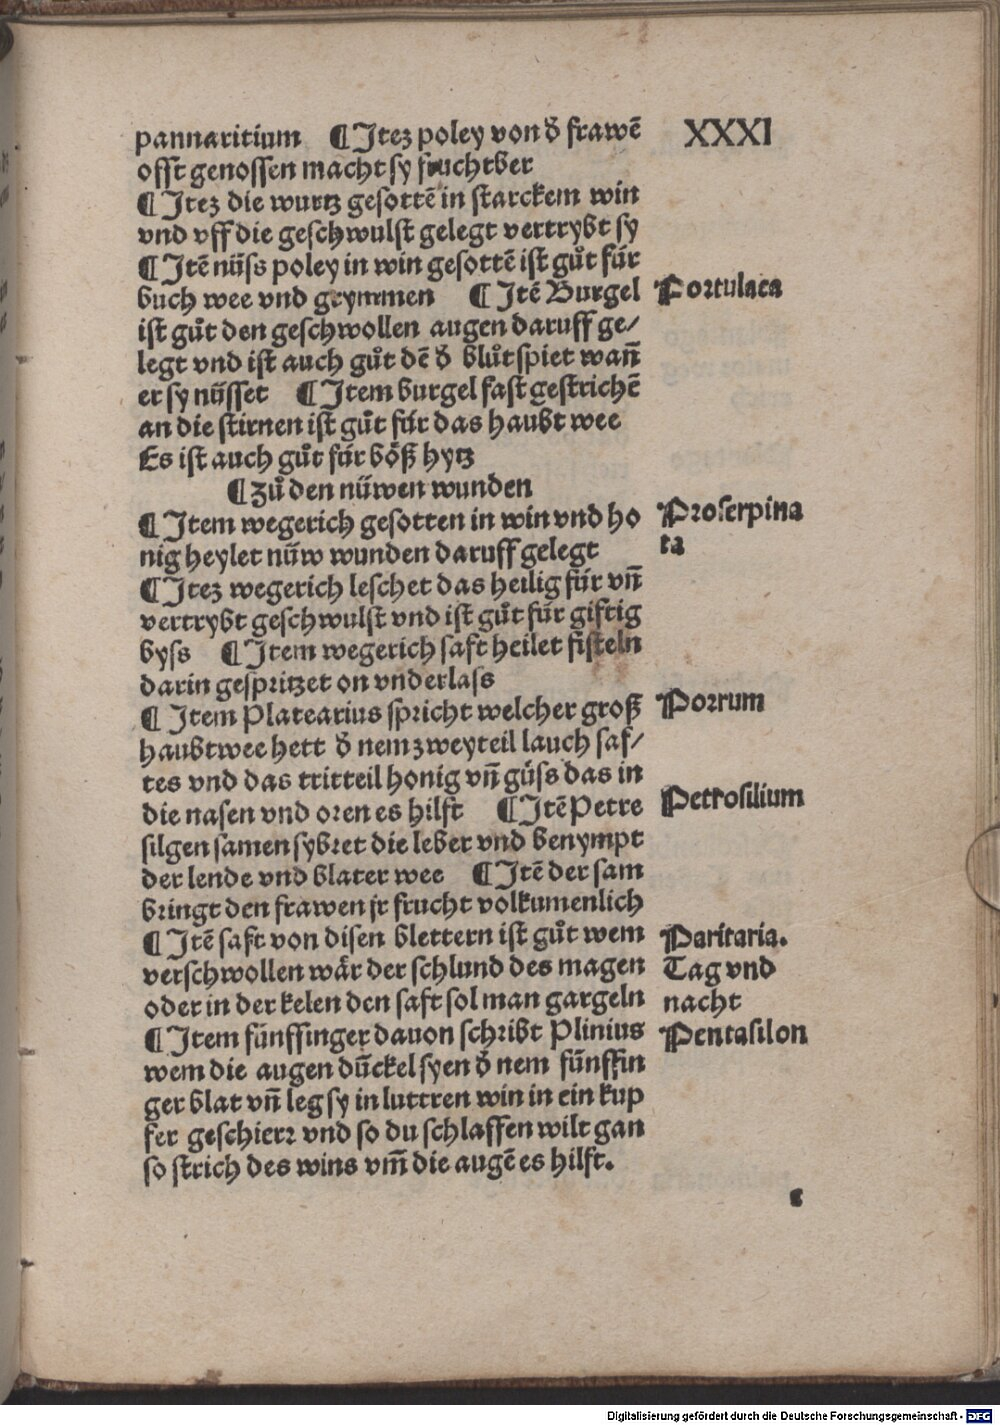 pannaritium ¶ Itez poley von d̕ frawē
XXXI
offt genossen macht sy fruchtber
¶ Itez die wurtz gesottē in starckem win
vnd vff die geschwulst gelegt vertrybt sy
¶ Itē nüss poley in win gesottē ist gůt für
buch wee vnd grymmen ¶ Itē Burgel
Portulaca
ist gůt den geschwollen augen daruff ge/
legt vnd ist auch gůt dē d̕ blůt spiet wañ
er sy nüsset ¶ Item burgel fast gestrichē
an die stirnen ist gůt für das haubt wee
Es ist auch gůt für böß hytz
¶ Zů den nüwen wunden
¶ Item wegerich gesotten in win vnd ho
Proserpina
nig heylet nüw wunden daruff gelegt
ta
¶ Itez wegerich leschet das heilig für vñ
vertrybt geschwulst vnd ist gůt für giftig
byss ¶ Item wegerich saft heilet fisteln
darin gespritzet on vnderlass
¶ Item Platearius spricht welcher groß
Porrum
haubtwee hett d̕ nem zweyteil lauch saf/
tes vnd das tritteil honig vñ güss das in
die nasen vnd oren es hilft ¶ Itē Petre
Petrosilium
silgen samen sybret die leber vnd benympt
der lende vnd blater wee ¶ Itē der sam
bringt den frawen jr frucht volkumenlich
¶ Itē saft von disen blettern ist gůt wem
Paritaria.
verschwollen wär der schlund des magen
Tag vnd
oder in der kelen den saft sol man gargeln
nacht
¶ Item fünffinger dauon schribt Plinius
Pentasilon
wem die augen dückel syen d̕ nem fünffin
ger blat vñ leg sy in luttren win in ein kup
fer geschierr vnd so du schlaffen wilt gan
so strich des wins vm̄ die augē es hilft.
e
Digitalisierung gefördert durch die Deutsche Forschungsgemeinschaft - DFG